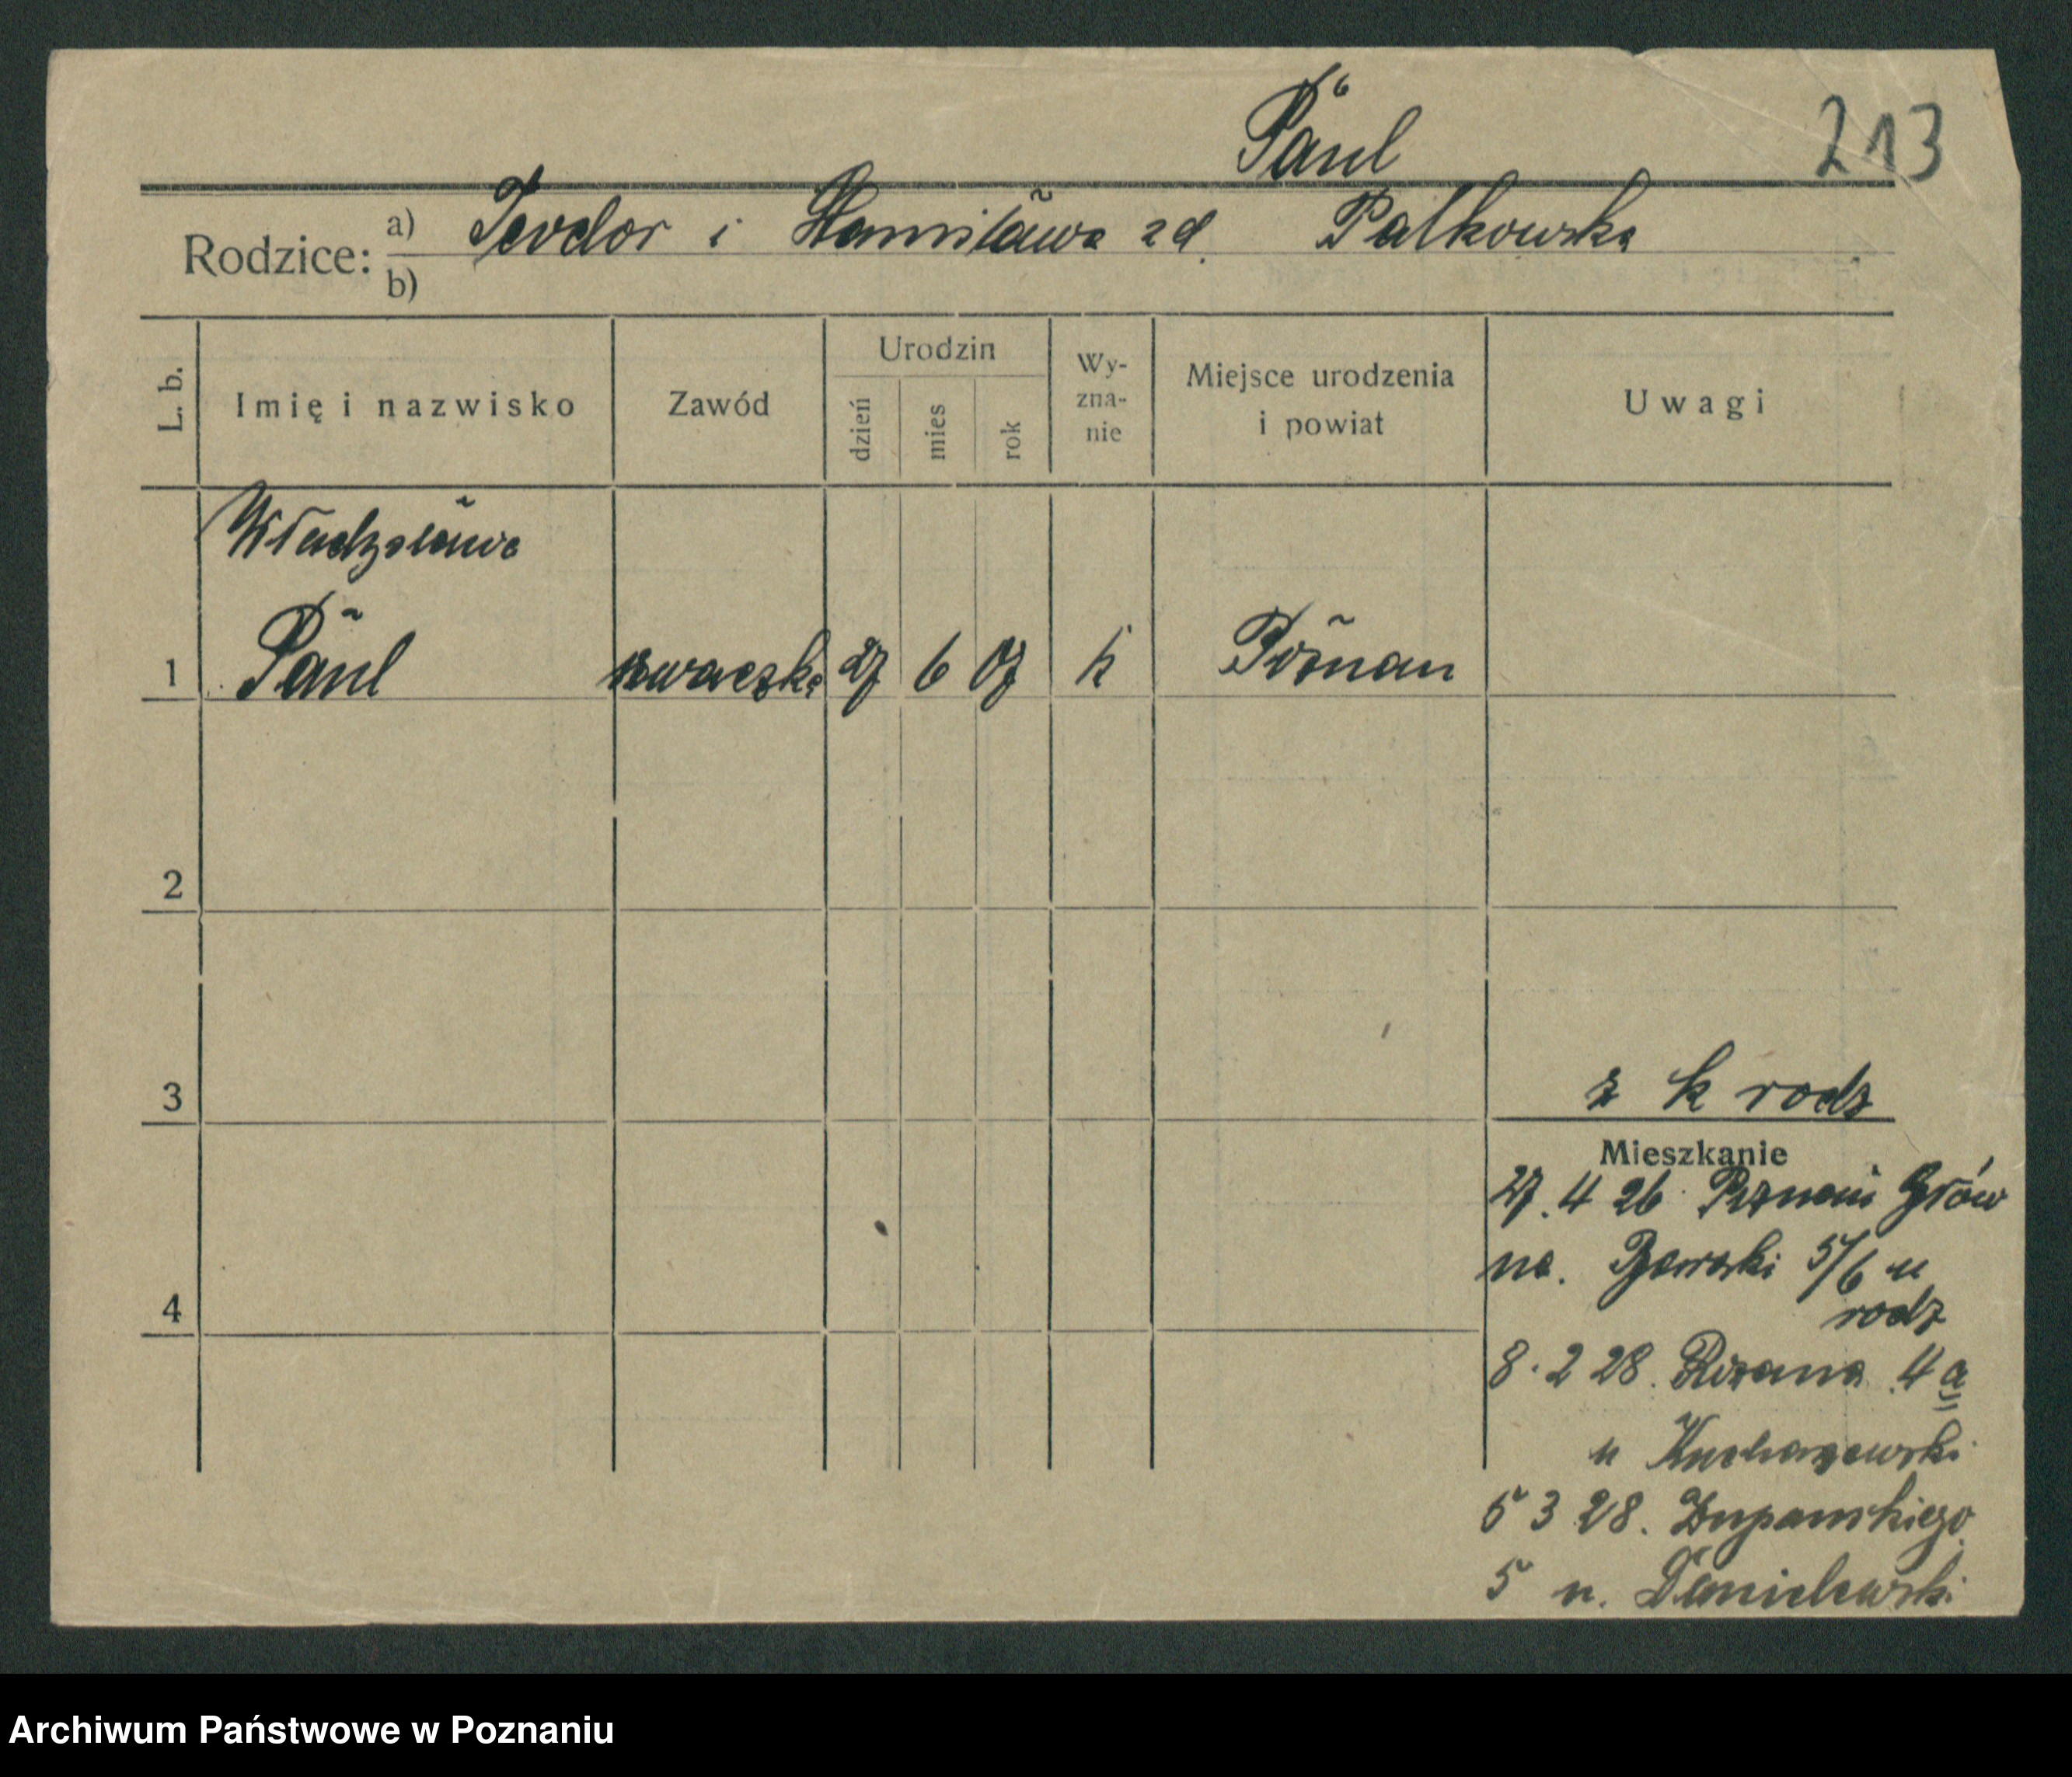 Paul
213
Rodzice: a) Teodor i Stanisława zd. Palkowska
b)
L. b.
Imię i nazwisko
Zawód
Urodzin
dzień
mies
rok
Wy-
zna-
nie
Miejsce urodzenia
i powiat
Uwagi
Władysława
1 Paul szwaczka 27 6 07 k Poznań
2
3
z k rodz
Mieszkanie
27. 4 26. Poznań Głów
na. 5/6 u
rodz
4
8. 2 28. Różana 4 a
u Kucharzewski
5 3 28. Żupańskiego
5 u. Danielewski
Archiwum Państwowe w Poznaniu